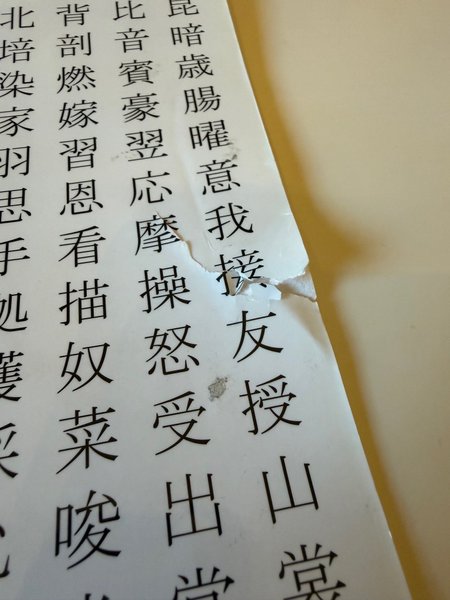 北背比昆
培剖音暗
染燃賓歳
家嫁豪腸
羽習翌曜
思恩応意
手看摩我
処描操接
奴怒友
菜受授
唆出山